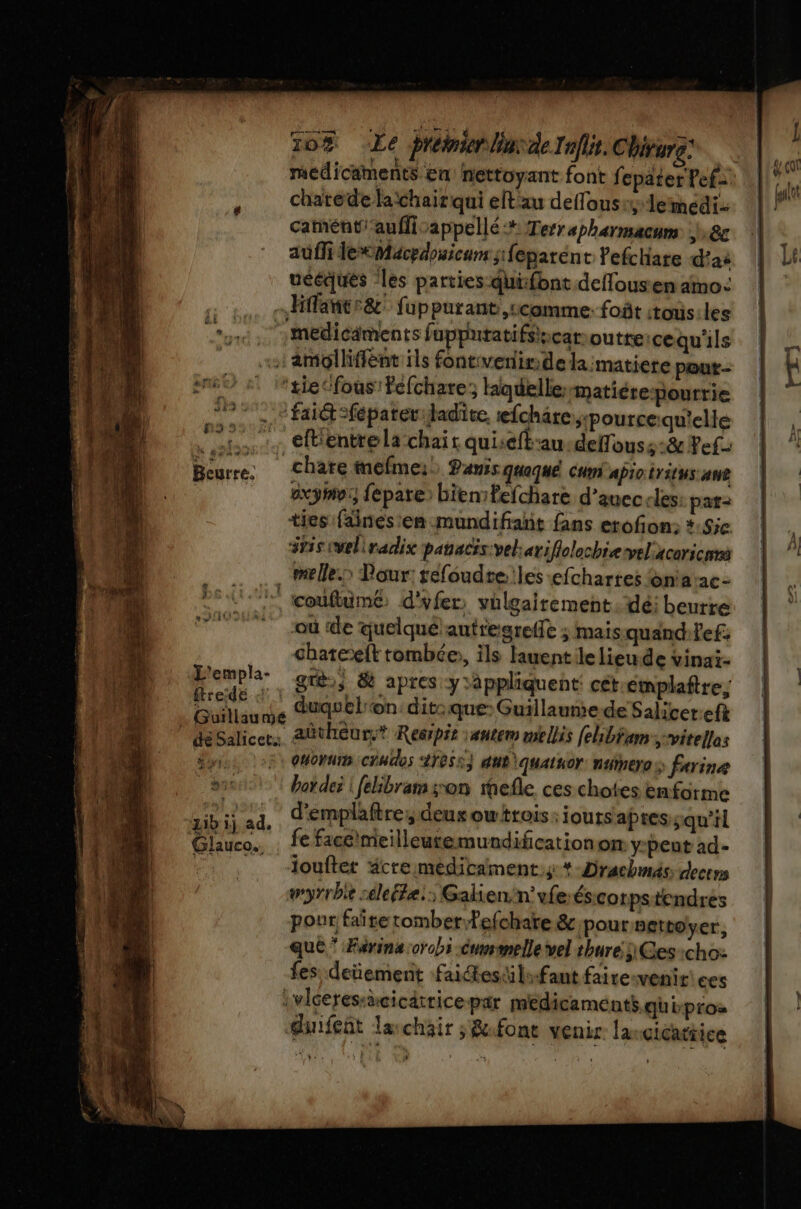 108 Le premier liu. de Instit. Chirurg.
medicaments en nettoyant font separer l'es-
chare de la chair qui est au dessous, le medi-
cament aussi appellé * Tetrapharmacum, &
aussi le * Macedonicum, separent l'eschare d'a-
uecques les parties qui sont dessous en amo-
lissant & suppurant, comme font tous les
medicaments suppuratifs: car outre ce qu'ils
amollissent ils font venir de la matiere pour-
rie sous l'eschare, laquelle matiére pourrie
faict separer ladite eschare, pource qu'elle
est entre la chair qui est au dessous, & l'es-
Beurre. chare mesme. Panis quoque cum apio tritus aut
oxymo, separe bien l'eschare d'auec les par-
ties saines en mundifiant sans erosion, * Sic
iris vel radix panacis vel aristolochiæ vel acori cum
melle. Pour resoudre les eschartes on a ac-
coustumé d'vser vulgairement de beurre
ou de quelque autre gresse; mais quand l'es-
chare est tombée, ils lauent le lieu de vinai-
L'empla- gre, & apres y appliquent cét emplastre,
stre de
Guillaume duquel on dit que Guillaume de Salicet est
de Salicet. autheur, * Recipit autem mellis selibram, vitellos
quorum crudos tres, aut quatuor numero, farinæ
hordei selibram, on mesle ces choses en forme
lib ij ad. d'emplastre, deux ou trois iours apres, qu'il
Glauco. se face meilleure mundification on y peut ad-
iouster acre medicament, * Drachmas decem
myrrhæ electæ. Galien n'vse és corps tendres
pour faire tomber l'eschare & pour nettoyer,
que * Farina orobi cum melle vel thure, Ces cho-
ses deüement faictes il faut faire venir ces
vlceres à cicatrice par medicaments qui pro-
duisent la chair, & font venir la cicatrice